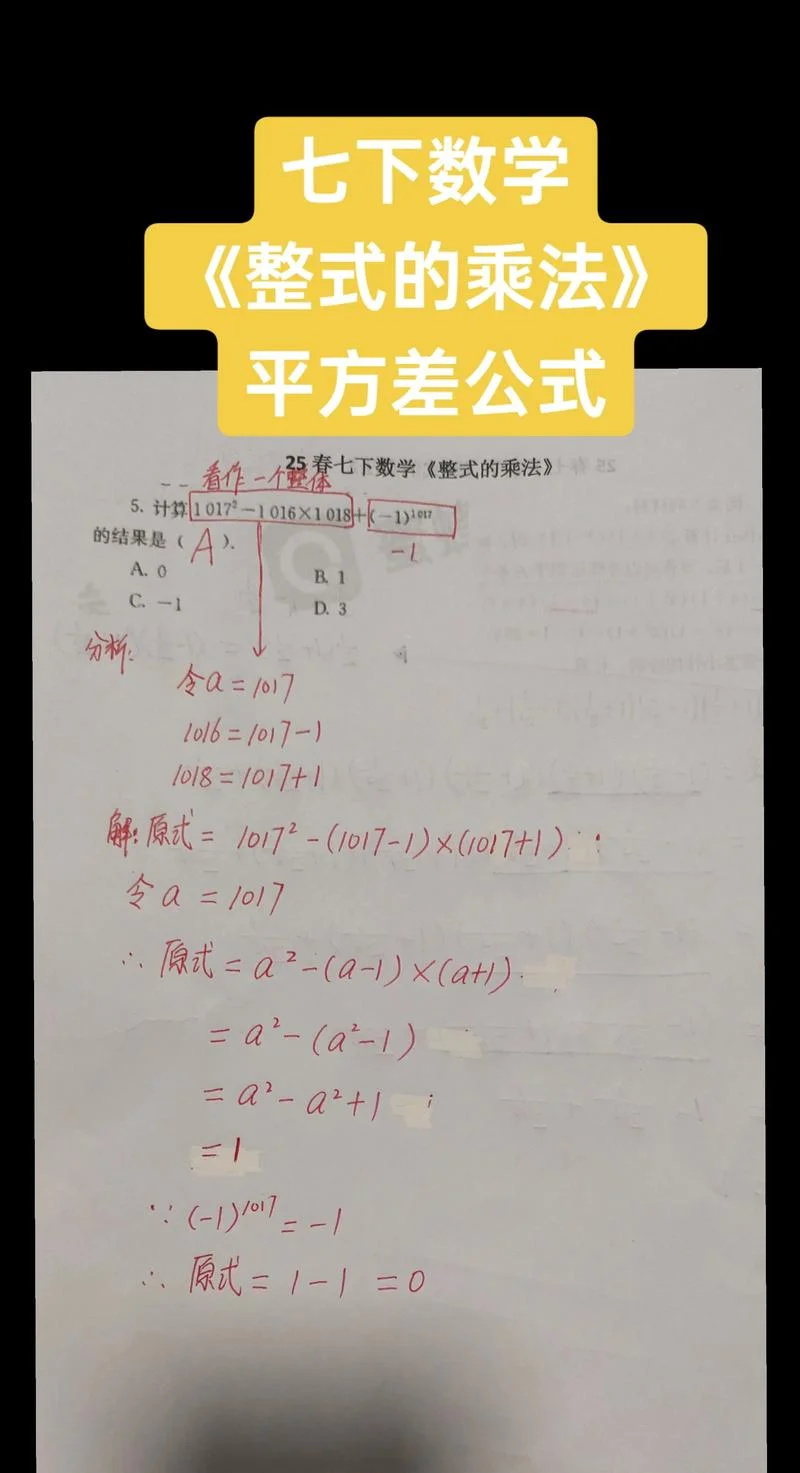 七下数学
《整式的乘法》
平方差公式
25春七下数学《整式的乘法》
看作一个整体
5. 计算1017²-1016×1018+(-1)¹⁰¹⁷
-1
的结果是( A ).
A. 0
B. 1
C. -1
D. 3
分析:
令a=1017
1016=1017-1
1018=1017+1
解:原式= 1017²-(1017-1)×(1017+1)
令a =1017
∴ 原式=a²-(a-1)×(a+1)
=a²-(a²-1)
=a²-a²+1
=1
∵ (-1)¹⁰¹⁷=-1
∴ 原式= 1-1 =0